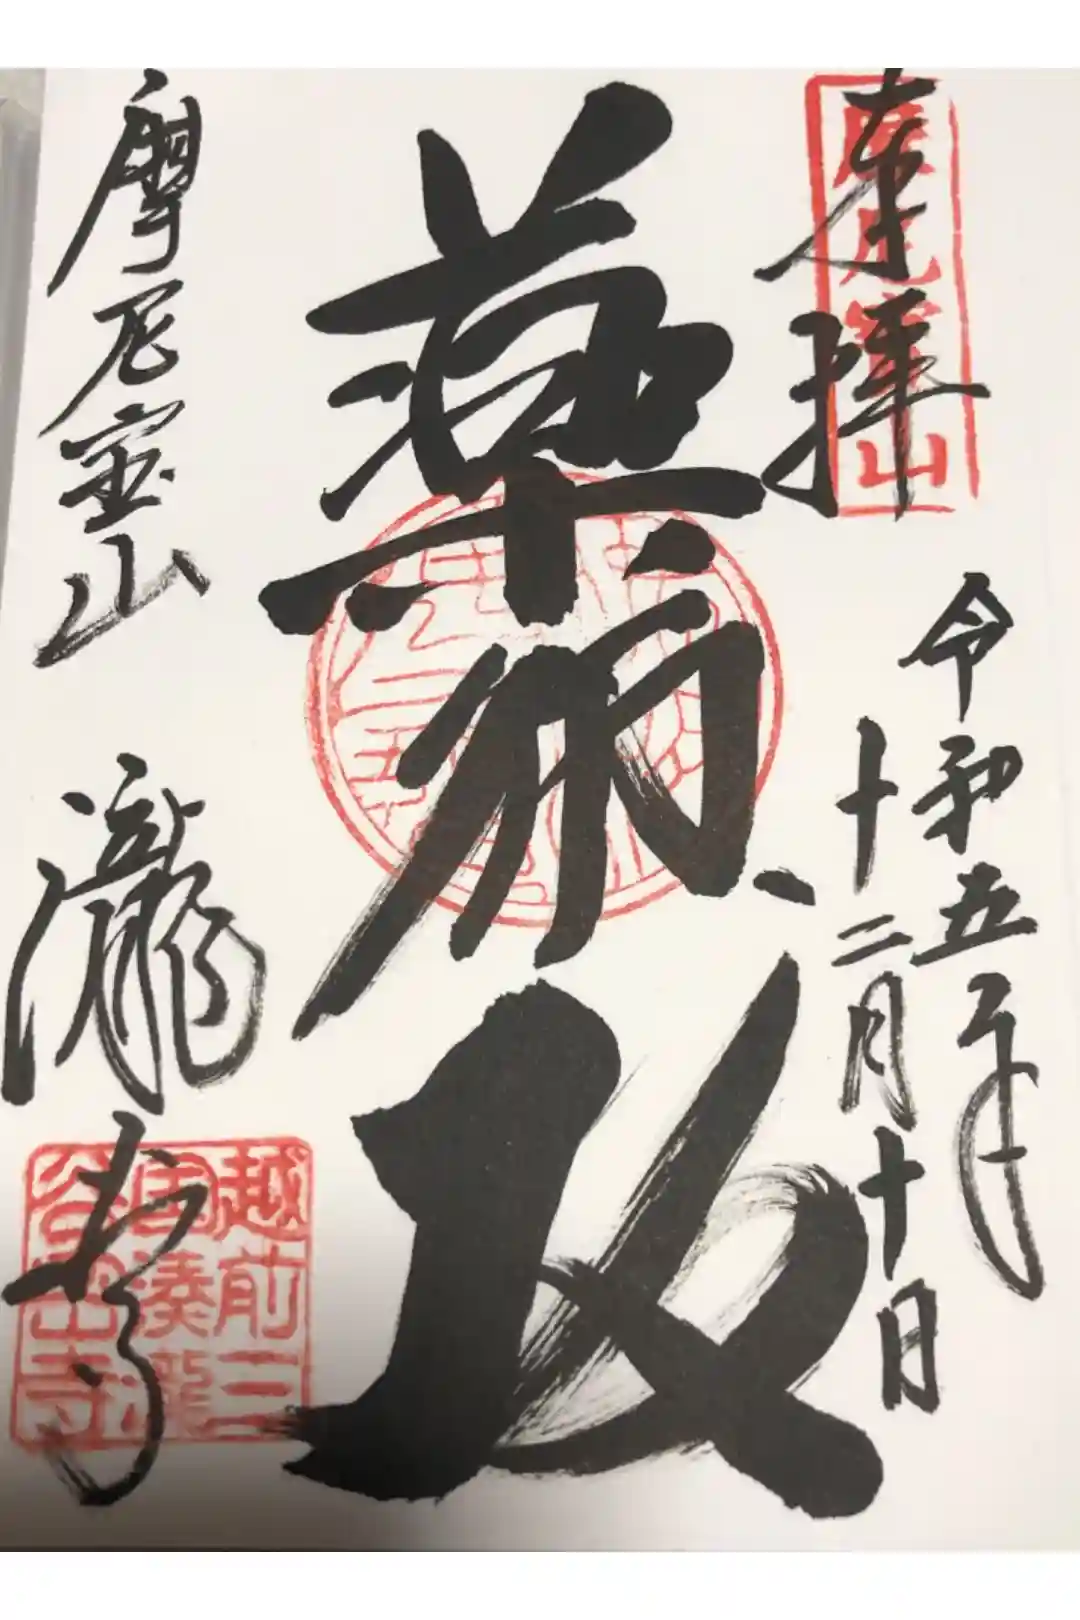 奉拝
摩尼寳山
令和五年
十二月十日
薬師
摩尼寳山
瀧谷寺
越前三
国湊瀧
谷寺